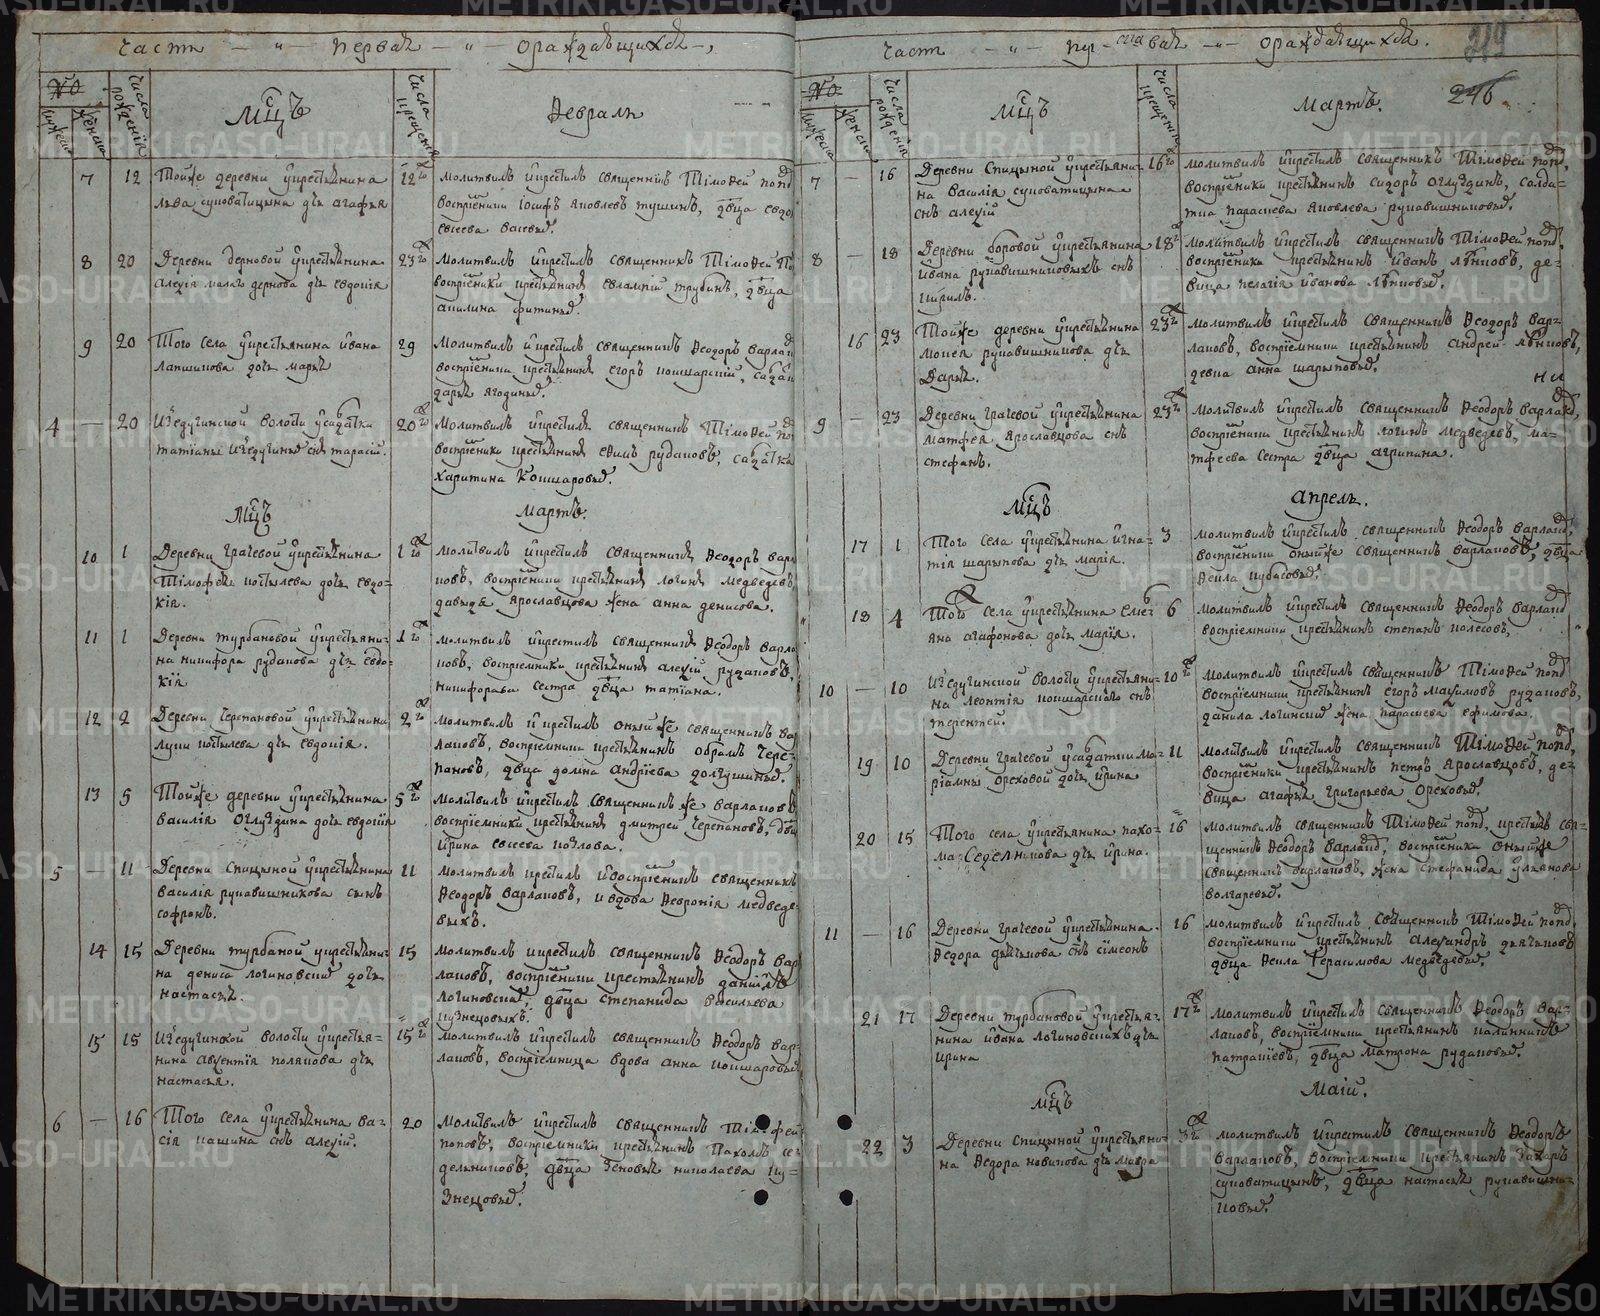 Часть — " — Первая — " — О раждающихся —,
№
Мужеска
Женска
Числа рожденїя
Мцъ
Числа крещенїя
Февраль
7 12 Тойже деревни у крестьянина
льва суповатицына дчь агафья
12го молитвилъ и крестилъ священникъ Тїмофей попо
воспрїемники Іосифъ яковлевъ тушинъ, двца евдо
8 20 Деревни дерновой у крестьянина
алеѯїя дернова дчь евдокїя
23го Молитвилъ и крестилъ священникъ Тїмофей По
воспрїемники крестьянинъ евлампїй трубинъ, двца
акилина
9 20 Того села у крестьянина ивана
лапшинова дочь марья
29 Молитвилъ и крестилъ священникъ Феодоръ варлак
воспрїемники крестьянинъ егоръ кокшарскїй, салдат
дарья ягодиныхъ.
4 — 20 волости у салдатки
татїаны снъ тарасїй.
20го Молитвилъ и крестилъ священникъ Тїмофей по
воспрїемники крестьянинъ екимъ рудаковъ, салдатка
харитина Кокшаровыхъ.
Мцъ
Мартъ.
10 1 Деревни грачевой у крестьянина
Тїмофея костылева дочь евдо=
кїя.
1го Молитвилъ и крестилъ священникъ Феодоръ варла
ковъ, воспрїемники крестьянинъ логинъ медведевъ,
давыда ярославцова жена анна денисова.
11 1 Деревни турбановой у крестьяни=
на никифора рудакова дчь евдо=
кїя
1го молитвилъ и крестилъ священникъ Феодоръ варла
ковъ, воспрїемники крестьянинъ алеѯїй рудаковъ,
никифорава сестра двца татїана.
12 2 Деревни черепановой у крестьянина
луки костылева дчь евдокїя.
2го Молитвилъ и крестилъ оныйже священникъ вар
лаковъ, воспрїемники крестьянинъ обрамъ чере=
пановъ, двца домна андрїева долгушиныхъ.
13 5 Тойже деревни у крестьянина
василїя оглуздина дочь евдокїя
5го молитвилъ и крестилъ священникъ же варлаковъ
воспрїемники крестьянинъ дмитрей черепановъ, двца
ирина евсеева козлова.
5 — 11 Деревни Спицыной у крестьянина
василїя рукавишникова сынъ
софронъ.
11 молитвилъ крестилъ и воспрїемникъ священникъ
Феодоръ варлаковъ, и вдова Февронїя медведе
выхъ.
14 15 Деревни турбаной у крестьяни=
на дениса логиновскихъ дочь
настасья.
15 молитвилъ и крестилъ священникъ Феодоръ вар
лаковъ, воспрїемники крестьянинъ данїилъ
логиновскихъ, двца степанида васильева
кузнецовыхъ.
15 15 волости у крестья=
нина авѯентїя полякова дчь
настасья.
15го молитвилъ и крестилъ священникъ Феодоръ вар
лаковъ, воспрїемница вдова анна кокшаровых
6 — 16 Того села у крестьянина ва=
сїя кашина снъ алеѯїй.
20 молитвилъ и крестилъ священникъ Тїмофей
поповъ, воспрїемники крестьянинъ Пахомъ се=
дельниковъ, двца Зеновья николаева ку=
знецовыхъ.
Часть — " — Пер-вая — " — О раждающихся.
219
246
№
Мужеска
Женска
Числа рожденїя
Мцъ
Числа крещенїя
Мартъ.
7 — 16 Деревни Спицыной у крестьяни=
на василїя суповатицына
снъ алеѯїй
16го молитвилъ и крестилъ священникъ Тїмофей попо,
воспрїемники крестьянинъ сидоръ оглуздинъ, салда=
тка параскева яковлева рукавишниковыхъ.
8 — 18 Деревни боровой у крестьянина
ивана рукавишниковыхъ снъ
кирилъ.
18 молитвилъ и крестилъ священникъ Тїмофей попо,
воспрїемники крестьянинъ иванъ , де=
вица пелагїя иванова
16 23 Тойже деревни у крестьянина
мокея рукавишникова дчь
Дарья.
23го молитвилъ и крестилъ священникъ Феодоръ вар=
лаковъ, воспрїемники крестьянинъ андрей
девка анна шарыповыхъ.
9 — 23 Деревни грачевой у крестьянина
матфея ярославцова снъ
стефанъ.
23го молитвилъ и крестилъ священникъ Феодоръ варлако,
воспрїемники крестьянинъ логинъ медведевъ, ма=
тфеева сестра двца агрипина.
Мцъ
Апрель.
17 1 Того села у крестьянина игна=
тїя шарыпова дчь марїя.
3 молитвилъ и крестилъ священникъ Феодоръ варлако,
воспрїемники оныйже священникъ варлаковъ, двца
Фекла кубасовыхъ.
18 4 Того села у крестьянина емел=
яна агафонова дочь марїя.
6 молитвилъ и крестилъ священникъ Феодоръ варлако
воспрїемники крестьянинъ степанъ колесовъ,
10 — 10 волости у крестьяни=
на леонтїя кокшарскаго снъ
терентей.
10го молитвилъ и крестилъ священникъ Тїмофей попо
воспрїемники крестьянинъ егоръ маѯимовъ рудаковъ,
данила логинскихъ жена параскева ефимова.
19 10 Деревни грачевой у салдатки ма=
рїамны ореховой дочь ирина
11 молитвилъ и крестилъ священникъ Тїмофей попо,
воспрїемники крестьянинъ петръ ярославцовъ, де=
вица агафья григорьева Ореховыхъ.
20 15 Того села у крестьянина пахо=
ма Седелникова дчь ирина.
16 молитвилъ священникъ Тїмофей попо, крестилъ свя=
щенникъ Феодоръ варлако, воспрїемники оныйже
священникъ варлаковъ, жена стефанида ульянова
волгаревыхъ.
11 — 16 Деревни грачевой у крестьянина
Федора дьячкова снъ сїмеонъ
16 молитвилъ и крестилъ священникъ Тїмофей попо,
воспрїемники крестьянинъ алеѯандръ дьячковъ
двца Фекла Герасимова медведевыхъ.
21 17 Деревни турбановой у крестья=
нина ивана логиновскихъ дчь
ирина
17го молитвилъ и крестилъ священникъ Феодоръ вар=
лаковъ, воспрїемники крестьянинъ калинникъ
патракїевъ, двца матрона рудаковыхъ.
Мцъ
Маїй.
22 3 Деревни Спицыной у крестьяни=
на Федора новикова дчь мавра
3го молитвилъ и крестилъ священникъ Феодоръ
варлаковъ, воспрїемники крестьянинъ Захаръ
суповатицынъ, двца настасья рукавишни=
ковыхъ.
METRIKI.GASO-URAL.RU